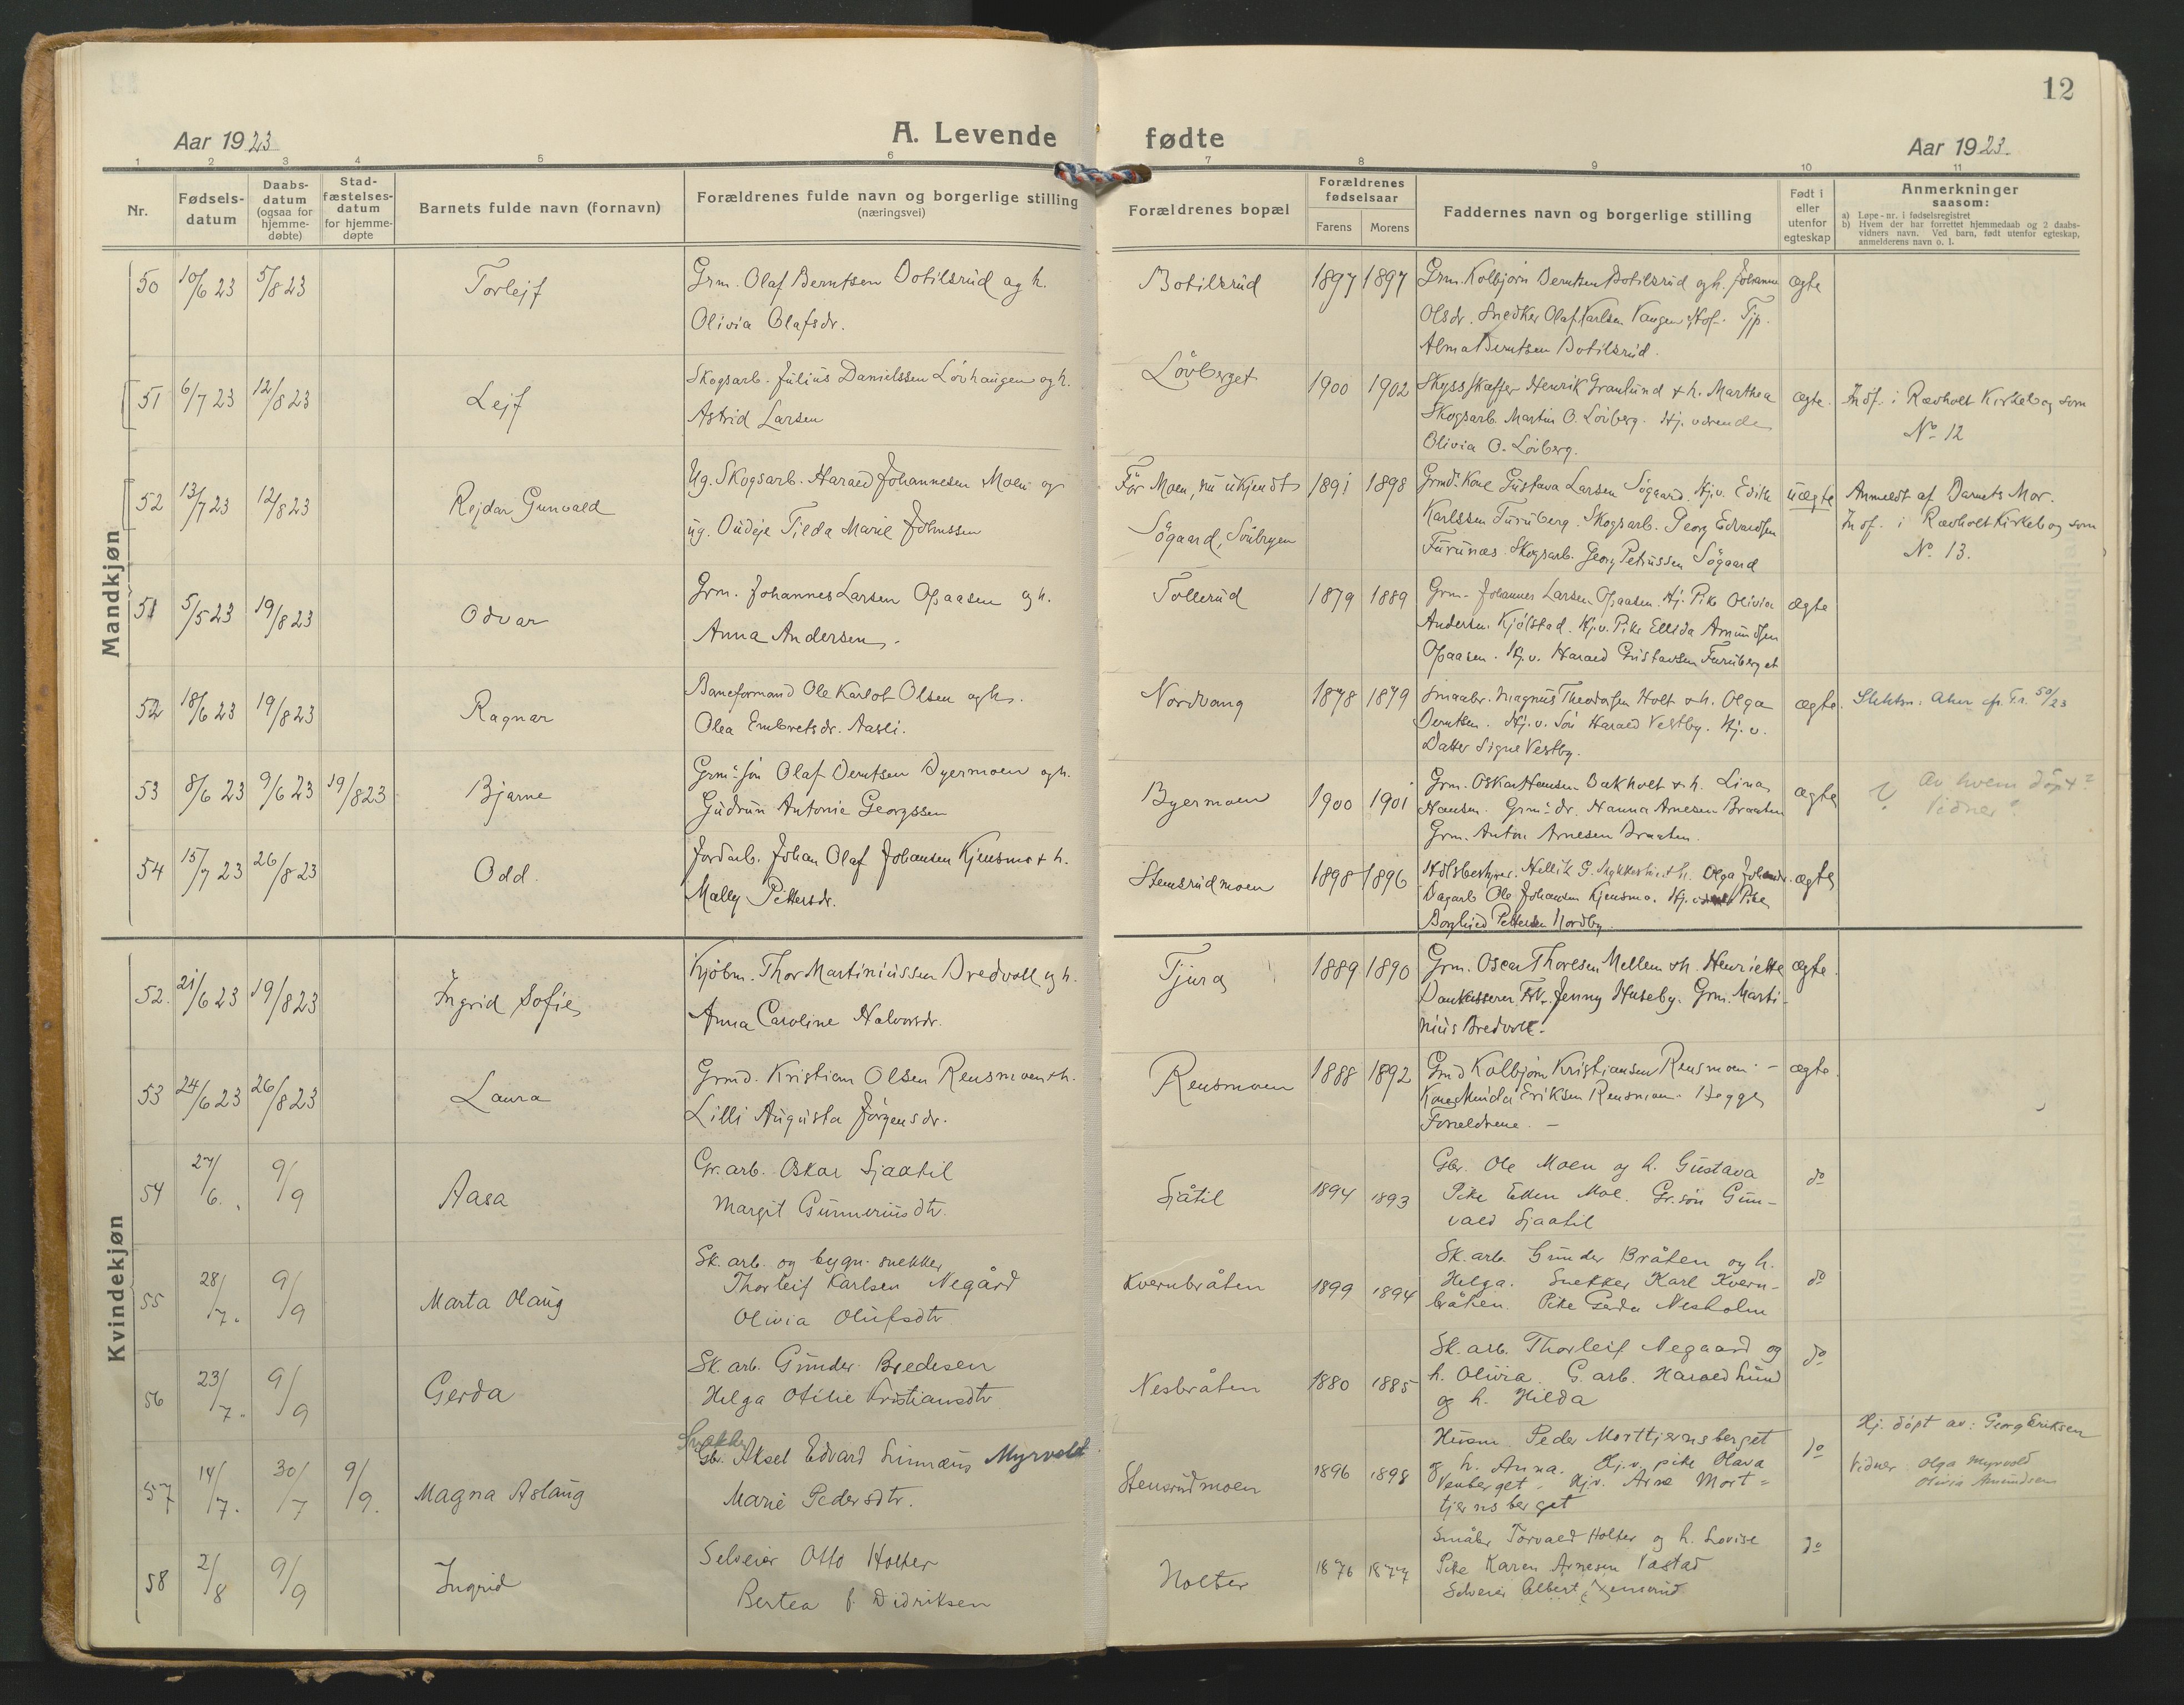 12
Aar 1923
A. Levende fødte
Aar 1923
1 2 3 4 5 6 7 8 9 10 11
Nr.
Fødsels-
datum
Daabs-
datum
(ogsaa for
hjemme-
døbte)
Stad-
fæstelses-
datum
for hjemme-
døpte
Barnets fulde navn (fornavn)
Forældrenes fulde navn og borgerlige stilling
(næringsvei)
Forældrenes bopæl
Forældrenes
fødselsaar
Farens Morens
Faddernes navn og borgerlige stilling
Født i
eller
utenfor
egteskap
Anmerkninger
saasom:
a) Løpe-nr. i fødselsregistret
b) Hvem der har forrettet hjemmedaab og 2 daabs-
vidners navn. Ved barn, født utenfor egteskap,
anmelderens navn o. l.
Mandkjøn
50 10/6 23 5/8 23 Torlejf
Grm. Olaf Berntsen Botilsrud og h.
Olivia Olafsdr.
Botilsrud 1897 1897
Grm. Kolbjørn Berntsen Botilsrud og h. Johanne
Olsdr. Snedker Olaf Karlsen Vangen, Hof. Tjp.
Alma Berntsen Botilsrud.
ægte
51 6/7 23 12/8 23 Lejf
Skogsarb. Julius Danielssen Lövhaugen og h.
Astrid Larsen
Lövberget 1900 1902
Skysskaffer Henrik Granlund & h. Marthea
Skogsarb. Martin O. Lövberg. Hj. værende
Olivia O. Lövberg.
ægte.
Indf. i Rævholt Kirkebog som
No 12
52 13/7 23 12/8 23 Rejdar Gunvald
Ug. Skogsarb. Harald Johannesen Moen og
ug. Budeje Tilda Marie Johnssen
För Moen, nu ukjendt
Sögaard, Sönbygen
1891 1898
Grmd. Kone Gustava Larsen Sögaard. Hj.v. Edith
Karlssen Furuberg. Skogsarb. Georg Edvardsen
Furunæs. Skogsarb. Georg Petrussen Sögaard
uægte
Anmeldt af Barnets Mor.
Indf. i Rævholt Kirkebog som
No 13.
51 5/5 23 19/8 23 Odvar
Grm. Johannes Larsen Opaasen og h.
Anna Andersen.
Tollerud 1879 1889
Grm. Johannes Larsen Opaasen. Hj. Pike Olivia
Andersen Kjölstad. Hj.v. Pike Ellida Amundsen
Opaasen. Hj.v. Harald Gustavsen Furuberget
ægte
52 18/6 23 19/8 23 Ragnar
Baneformand Ole Karlot Olsen og h.
Olea Embretsdr. Aasli.
Nordvang 1878 1879
Smaabr. Magnus Theodorsen Holt & h. Olga
Berntsen. Hj.v. Sön Harald Vestby. Hj.v.
Datter Signe Vestby.
ægte.
53 8/6 23 9/6 23 19/8 23 Bjarne
Grm. Sön Olaf Berntsen Byermoen og h.
Gudrun Antonie Georgssen
Byermoen 1900 1901
Grm. Oskar Hansen Bakholt & h. Lina
Hansen. Grm. dr. Hanna Arnesen Braaten
Grm. Anton Arnesen Braaten.
ægte
? Av hvem döpt?
Vidner?
54 15/7 23 26/8 23 Odd.
Jordarb. Johan Olaf Johansen Kjensmo & h.
Mally Pettersdr.
Stensrudmoen 1898 1896
Olga
Dagarb. Ole Johansen Kjensmo. Hj. Pike
Borghild Pettersen Nordby.
ægte
Kvindekjøn
52. 21/6 23 19/8 23 Ingrid Sofie
Kjöbm. Thor Martiniussen Bredvoll og h.
Anna Caroline Halvorsdr.
Tjura 1889 1890
Grm. Oscar Thoresen Mellem & h. Henriette
Bankkasserer Frk. Jenny Huseby. Grm. Marti-
nius Bredvoll.
ægte.
53 24/6 23 26/8 23 Laura
Grmd. Kristian Olsen Rensmoen & h.
Lilli Augusta Jörgensdr.
Rensmoen 1888 1892
Grmd Kolbjörn Kristiansen Rensmoen. -
Kone Minda Eriksen Rensmoen. Begge
Forældrene. -
ægte.
54 27/6. 9/9 Aasa
Gr. arb. Oskar Sjaatil
Margit Gunneriusdtr.
Sjåtil 1894 1893
Gbr. Ole Moen og h. Gustava
Pike Ellen Moe. Gr. sön Gun-
vald Sjaatil
do
55 28/7. 9/9 Marta Olaug
Sk. arb. og bygn. snekker
Thorleif Karlsen Negård
Olivia Olufsdtr.
Kvernbråten 1899 1894
Sk. arb. Gunder Bråten og h.
Helga. Snekker Karl Kvern-
bråten. Pike Gerda Nesholm
do
56 23/7. 9/9 Gerda
Sk. arb. Gunder Bredesen
Helga Otilie Kristiansdtr
Nesbråten 1880 1885
Sk. arb. Thorleif Negaard og
h. Olivia. G. arb. Harald Lund
og h. Hilda
do
57 14/7. 30/7 9/9. Magna Aslaug
Snekker
Gbr. Aksel Edvard Linnæus Myrvold
Marie Pedersdtr.
Stensrudmoen 1896 1898
Husm. Peder Morttjernsberget
og h. Anna. Hj.v. pike Olava
Venberget. Hj.v. Arne Mort-
tjernsberget
do
Hj. döpt av: Georg Eriksen
Vidner Olga Myrvold
Olivia Amundsen
58 2/8 9/9 Ingrid
Selveier Otto Holter
Bertea f. Didriksen
Holter 1876 1877
Småbr Torvald Holter og h. Lovise
Pike Karen Arnesen
Selveier Albert
do